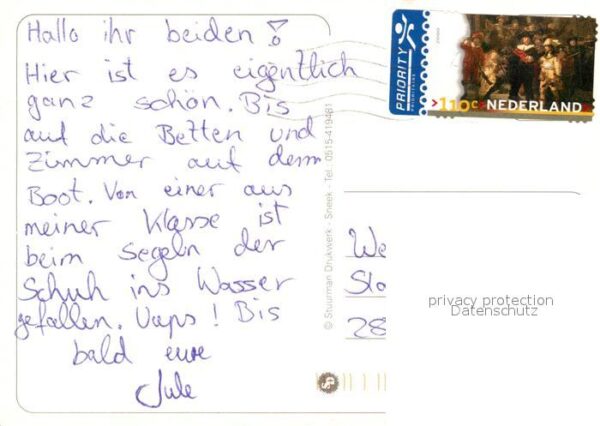 Hallo ihr beiden!
Hier ist es eigentlich
ganz schön. Bis
auf die Betten und
Zimmer auf dem
Boot. Von einer aus
meiner Klasse ist
beim Segeln der
Schuh ins Wasser
gefallen. Uups! Bis
bald eure
Jule
PRIORITY
PRIORITAIRE
>110c NEDERLAND
© Stuurman Drukwerk - Sneek - Tel.: 0515-419481
We
Slo
28
privacy protection
Datenschutz